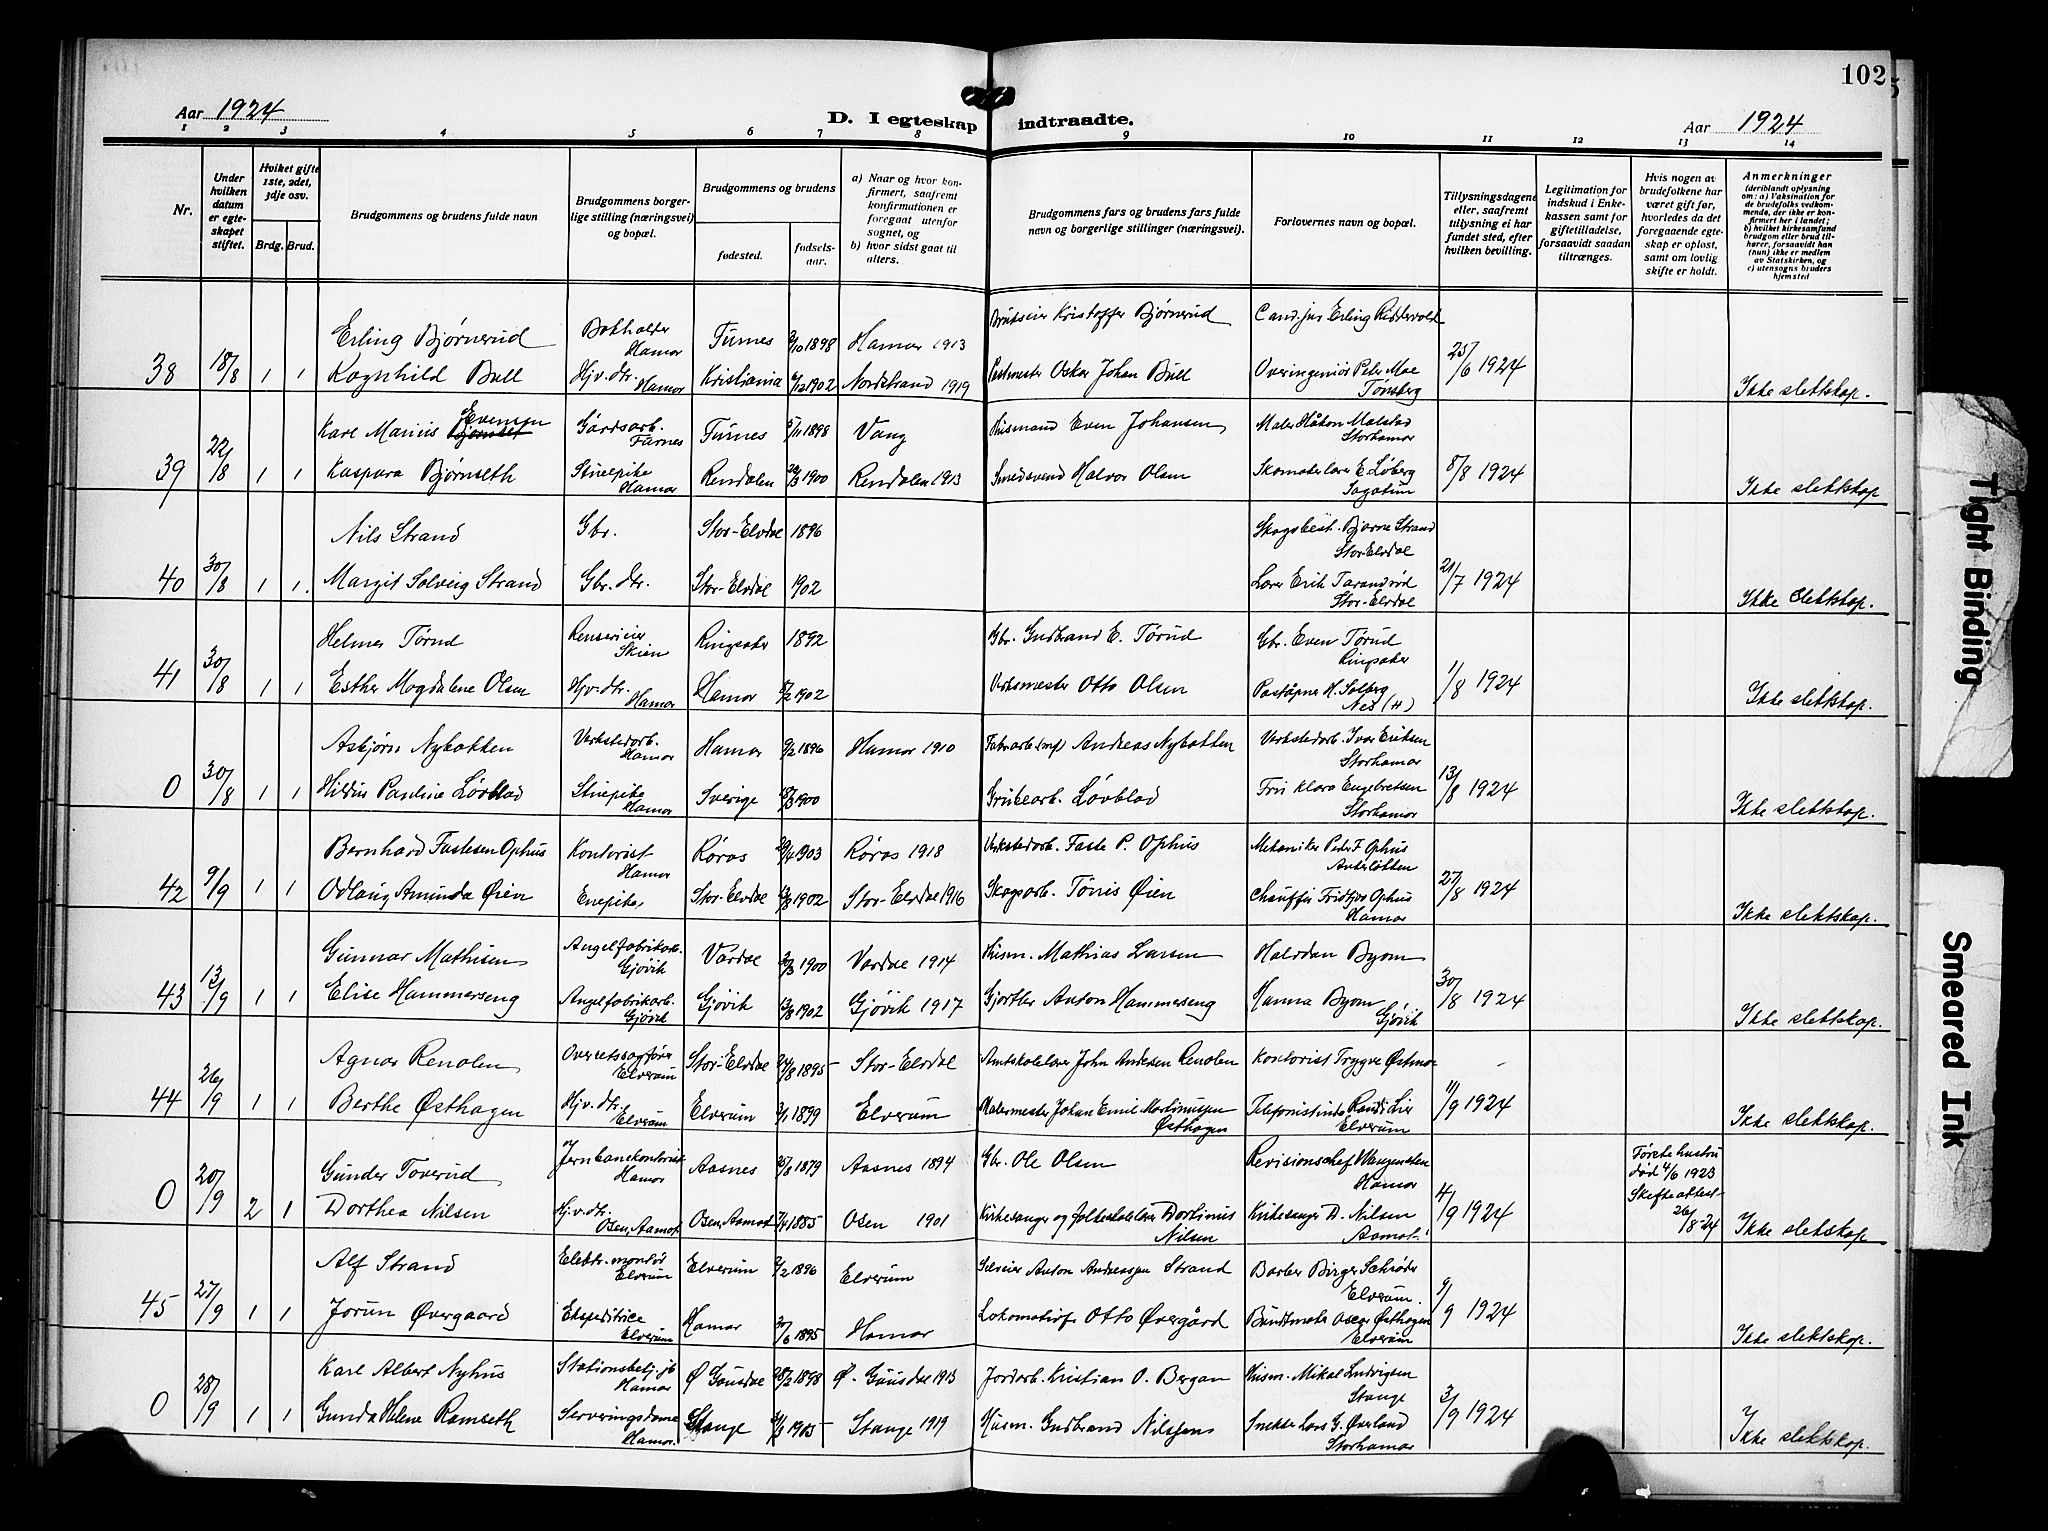 102
Aar 1924
D. I egteskap indtraadte.
Aar 1924
1 2 3 4 5 6 7 8 9 10 11 12 13 14
Nr.
Under hvilken datum er egteskapet stiftet.
Hvilket gifte 1ste, 2det, 3dje osv.
Brdg. Brud.
Brudgommens og brudens fulde navn
Brudgommens borgerlige stilling (næringsvei) og bopæl.
Brudgommens og brudens
fødested.
fødselsaar.
a) Naar og hvor konfirmert, saafremt konfirmationen er foregaat utenfor sognet, og
b) hvor sidst gaat til alters.
Brudgommens fars og brudens fars fulde navn og borgerlige stillinger (næringsvei).
Forlovernes navn og bopæl.
Tillysningsdagene eller, saafremt tillysning ei har fundet sted, efter hvilken bevilling.
Legitimation for indskud i Enkekassen samt for giftetilladelse, forsaavidt saadan tiltrænges.
Hvis nogen av brudefolkene har været gift før, hvorledes da det foregaaende egteskap er opløst, samt om lovlig skifte er holdt.
Anmerkninger
(deriblandt oplysning om: a) Vaksination for de brudefolks vedkommende, der ikke er konfirmert her i landet; b) hvilket kirkesamfund brudgom eller brud tilhører, forsaavidt han (hun) ikke er medlem av Statskirken, og c) utensogns bruders hjemsted
Erling Bjørnerud Bokholder Hamar Furnes 3/10 1898 Hamar 1913 Brukseier Kristoffer Bjørnerud Cand. jur Erling Riddervold
38 18/8 1 1 Ragnhild Bull Hjv. dtr. Hamar Kristiania 6/12 1902 Nordstrand 1919 Postmester Oskar Johan Bull Overingeniør Peter Moe Tønsberg 25/6 1924 Ikke slektskap.
Karl Marius Evensen Gårdsarb. Furnes Furnes 5/11 1898 Vang Husmand Even Johansen Maler Håkon Malstad Storhamar
39 22/8 1 1 Kaspara Bjørnseth Stuepike Hamar Rendalen 1900 Rendalen 1913 Smedsvend Halvor Olsen Skomakerlærer E. Løberg Sagatun 8/8 1924 Ikke slektskap
Nils Strand Gbr. Stor-Elvdal 1896 Skogsbest. Bjarne Strand Stor-Elvdal
40 30/8 1 1. Margit Solveig Strand Gbr. dtr. Stor-Elvdal 1902 Lærer Erik Tarandrød Stor-Elvdal 21/7 1924 Ikke Slektskap.
Helmer Tørud Renserieier Skien Ringsaker 1892 Gbr. Gudbrand E. Tørud Gbr. Even Tørud Ringsaker
41 30/8 1 1 Esther Magdalene Olsen Hjv. dtr. Hamar Hamar 8/2 1902 Verksmester Otto Olsen Poståpner H. Solberg Nes (H) 1/8 1924 Ikke slektskap.
Asbjørn Nybakken Verkstedarb. Hamar Hamar 9/2 1896 Hamar 1910 Andreas Nybakken Verkstedarb. Ivar Eriksen Storhamar
0 30/8 1 1 Hildur Pauline Løvblad Stuepike Hamar Sverige 8/3 1900 Grubearb. Løvblad Fru Klara Engebretsen Storhamar 13/8 1924 Ikke slektskap.
Bernhard Fastesen Ophus Kontorist Hamar Røros 29/4 1903 Røros 1918 Verkstedarb. Faste P. Ophus Mekaniker Peder F. Ophus Ankerløkken
42 9/9 1 1 Odlaug Amunda Øien Enepike, Stor-Elvdal 1902 Stor-Elvdal 1916 Skogsarb. Tønnes Øien Chauffør Fridtjov Ophus Hamar 27/8 1924 Ikke slektskap.
Gunnar Mathisen Angelfabrikarb. Gjøvik Vardal 1900 Vardal 1914 Husm. Mathias Larsen Halvdan Byom
43 13/9 1 1 Elise Hammerseng Angelfabrikarb. Gjøvik Gjøvik 13/8 1902 Gjøvik 1917 Gjørtler Anton Hammerseng Hanna Byom Gjøvik 30/8 1924 Ikke slektskap.
Agnar Renolen Overretssagfører Elverum Stor-Elvdal 24/8 1895 Stor-Elvdal Amtskolelærer John Andersen Renolen Kontorist Trygve Østmoe -
44 26/9 1 1 Berthe Østhagen Hjv. dtr. Elverum Elverum 3/1 1899 Elverum Malermester Johan Emil Martinussen Østhagen Telefonistinde Randi Lier Elverum 11/9 1924 Ikke slektskap.
Gunder Toverud Jernbanekontorist Hamar Aasnes 25/8 1879 Aasnes 1894 Gbr. Ole Olsen Revisionschef Wangensten Hamar Første hustru død 4/6 1923 Skifteattest 26/8 24
0 20/9 2 1 Dorthea Nilsen Hjv. dtr. Osen, Aamot Osen, Aamot 7/4 1885 Osen 1901 Kirkesanger og folkeskolelærer Dortinus Nilsen Kirkesanger D. Nilsen Aamot 4/9 1924 Ikke slektskap
Alf Strand Elektr. montør Elverum Elverum 2/2 1896 Elverum Anton Andreassen Strand Barber Birger Schrøder Elverum.
45 27/9 1 1 Jorun Øvergaard Ekspeditrice Elverum Hamar 30/6 1895 Hamar Lokomotivf. Otto Øvergård Buntmaker Oscar Østhagen Elverum 9/9 1924 Ikke slektskap.
Karl Albert Nyhus Stationsbetj. jb Hamar Ø Gausdal 28/2 1898 Ø. Gausdal 1913 Jordarb. Kristian O. Bergan Husm. Mikal Ludvigsen Stange
0 28/9 1 1 Gunda Helene Ramseth Serveringsdame Hamar. Stange 1905 Stange 1919 Husm. Gudbrand Nilssen Snekker Lars G. Øverland Storhamar 3/9 1924 Ikke slektskap.
Tight Binding
Smeared Ink